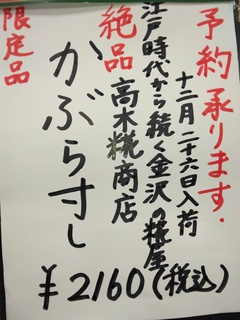 予約承ります.
十二月二十六日入荷
江戸時代から続く金沢の糀屋
絶品 高木糀商店
かぶら寸し
限定品
¥2160(税込)